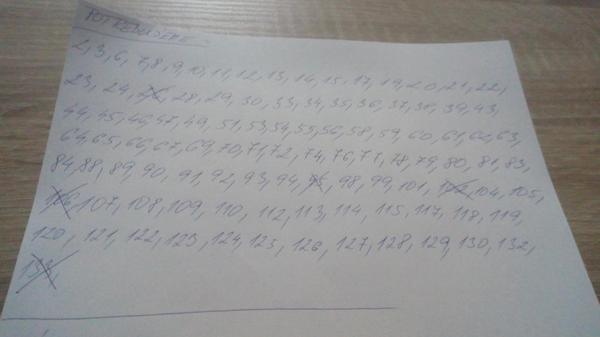 POTREBUJEME
2, 3, 6, 7, 8, 9, 10, 11, 12, 13, 14, 15, 17, 19, 20, 21, 22,
23, 24, 28, 29, 30, 33, 34, 35, 36, 37, 38, 39, 43,
44, 45, 46, 47, 49, 51, 53, 54, 55, 56, 58, 59, 60, 61, 62, 63,
64, 65, 66, 67, 69, 70, 71, 72, 74, 76, 77, 78, 79, 80, 81, 83,
84, 88, 89, 90, 91, 92, 93, 94, 98, 99, 101, 104, 105,
106, 107, 108, 109, 110, 112, 113, 114, 115, 117, 118, 119,
120, 121, 122, 123, 124, 125, 126, 127, 128, 129, 130, 132,
133,